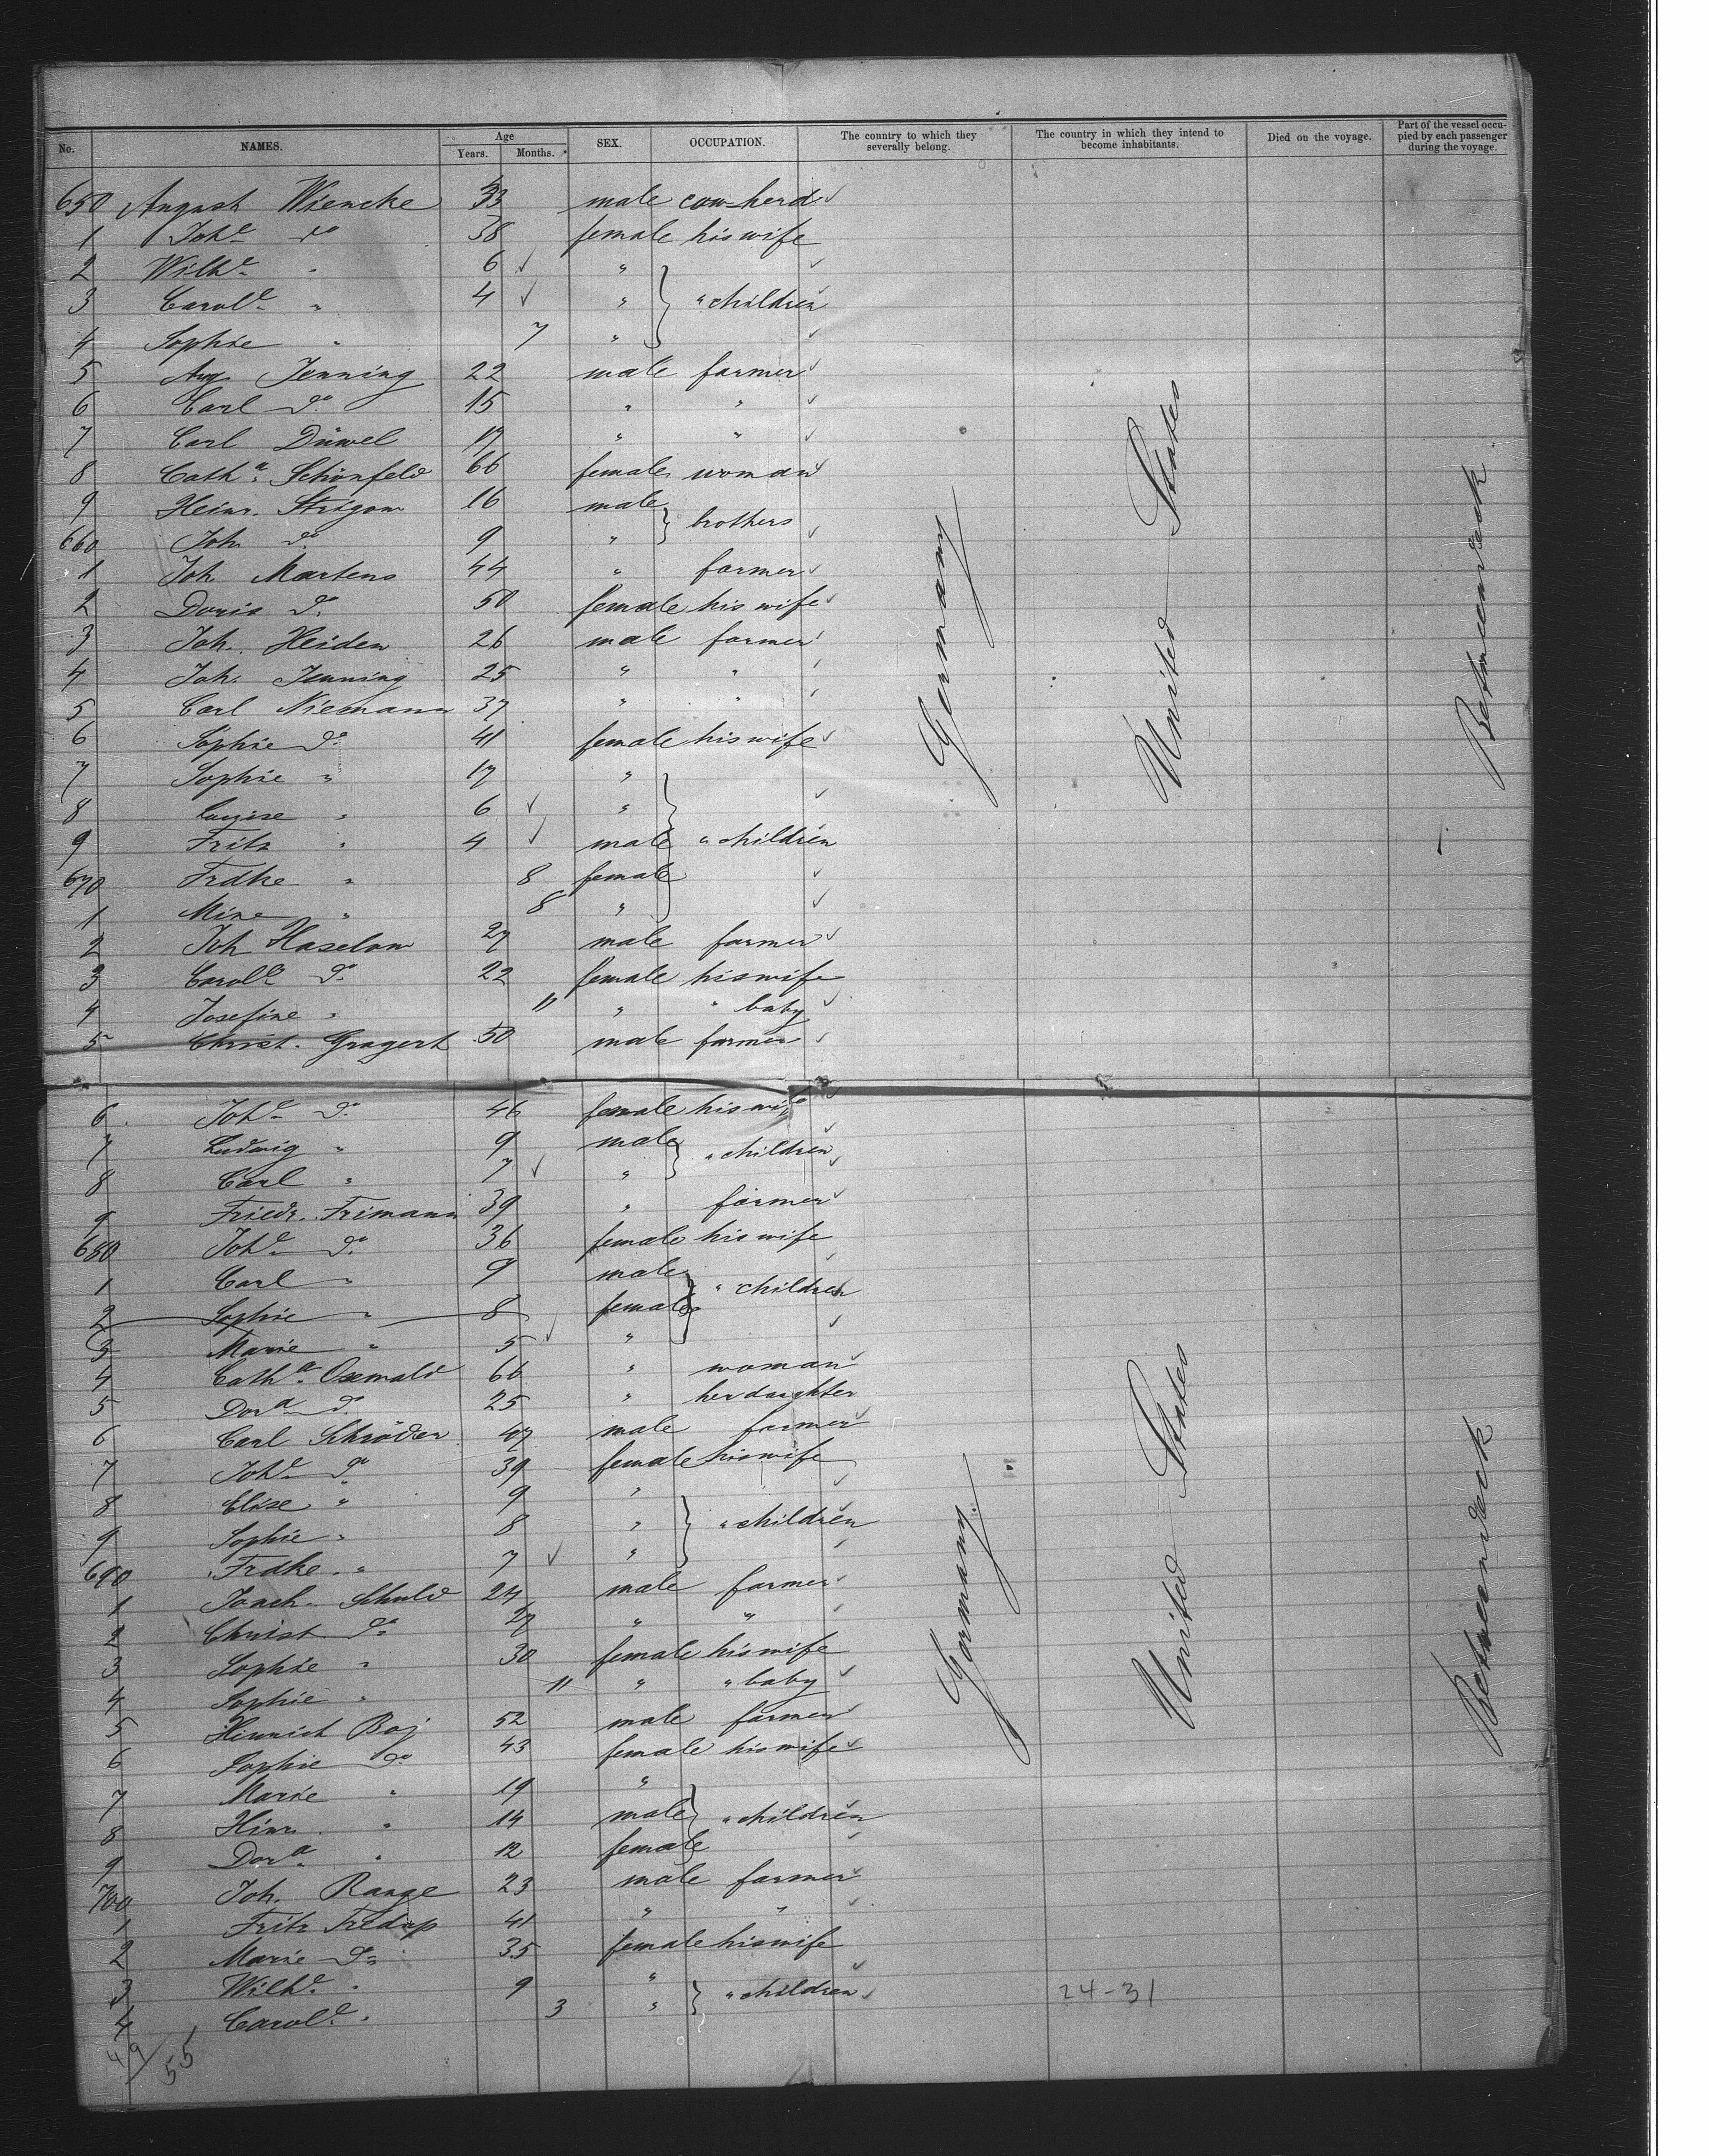 No. NAMES. Age Years. Months. SEX. OCCUPATION. The country to which they severally belong. The country in which they intend to become inhabitants. Died on the voyage. Part of the vessel occupied by each passenger during the voyage.
650 August Wiencke 33 male cow-herd
1 Johe do 38 female his wife
2 Wilhe " 6 "
3 Carole " 4 " " children
4 Sophie " 7 "
5 Aug Jenning 22 male farmer
6 Carl do 15 " "
7 Carl Düwel 17 " "
8 Catha Schönfeld 66 female woman
9 Heinr. Strigow 16 male brothers
660 Joh do 9 "
1 Joh Martens 44 " farmer
2 Doris do 50 female his wife
3 Joh. Heiden 26 male farmer
4 Joh. Jenning 25 " "
5 Carl Niemann 37 " "
6 Sophie do 41 female his wife
7 Sophie " 17 "
8 Louise " 6 "
9 Fritz " 4 male " children
670 Frdke " 8 female
1 Mine " 8 "
2 Joh Haselow 27 male farmer
3 Carole do 22 female his wife
4 Josefine " 11 " " baby
5 Christ. Gragert 50 male farmer
6 Johe do 46 female his wife
7 Ludwig " 9 male " children
8 Carl " 7 "
9 Friedr. Frimann 39 " farmer
680 Johe do 36 female his wife
1 Carl " 9 male " children
2 Sophie " 8 female
3 Marie " 5 "
4 Catha Osewald 66 " woman
5 Dora do 25 " her daughter
6 Carl Schröder 47 male farmer
7 Johe do 39 female his wife
8 Elise " 9 "
9 Sophie " 8 " " children
690 Frdke " 7 "
1 Joach. Schuld 24 male farmer
2 Christ do 27 " "
3 Sophie " 30 female his wife
4 Sophie " 11 " " baby
5 Hinrich Boj 52 male farmer
6 Sophie do 43 female his wife
7 Marie " 19 "
8 Hinr. " 14 male " children
9 Dora " 12 female
700 Joh. Range 23 male farmer
1 Fritz 41 " "
2 Marie do 35 female his wife
3 Wilhe " 9 " " children
4 Carole " 3 "
Germany
United States
Betweendeck
Germany
United States
Betweendeck
24-31
49/55